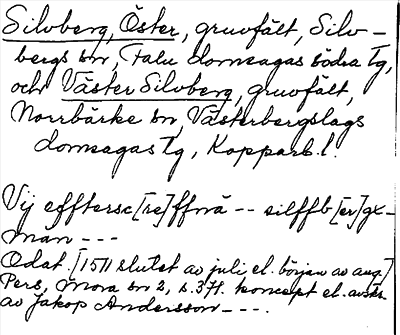 Silvberg, Öster, gruvfält, Silv-
bergs sn, Falu domsagas södra tg,
och Väster Silvberg, gruvfält,
Norrbärke sn, Västerbergslags
domsagas tg, Kopparb. l.
Vij efftersc[re]ffnä -- silffb[er]gx-
män ---
Odat. [1511 slutet av juli el. början av aug.]
Pers, Mora sn 2, s. 371. koncept el. avskr.
av Jakop Andersson ---.